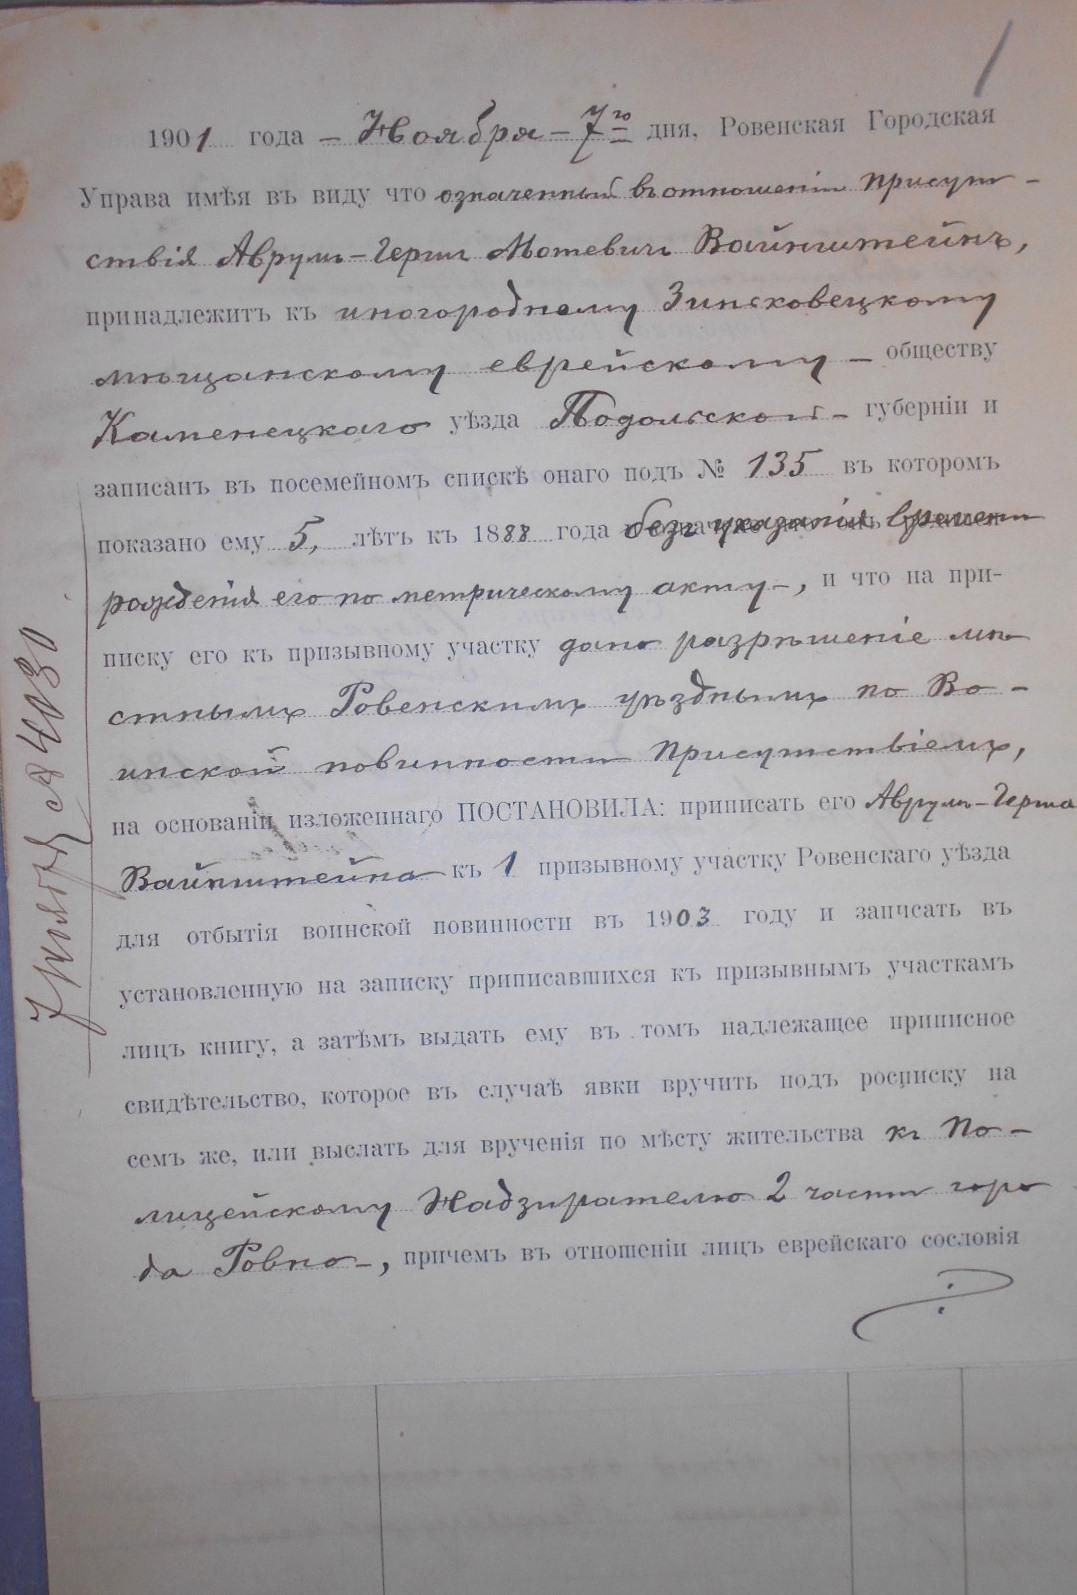 1
1901 года – Ноября – 7го дня, Ровенская Городская
Управа имѣя въ виду что означенный въ отношеніи Присут-
ствія Аврумъ-Герш Мотевичъ Вайнштейнъ,
принадлежитъ къ иногородному Зинковецкому
мѣщанскому еврейскому – обществу
Каменецкаго уѣзда Подольской – губерніи и
записанъ въ посемейномъ спискѣ онаго подъ № 135 въ которомъ
показано ему 5, лѣтъ къ 1888 года безъ указанія времени
рожденія его по метрическому акту –, и что на при-
писку его къ призывному участку дано разрѣшеніе мѣ-
стнымъ Ровенскимъ уѣзднымъ по Во-
инской повинности Присутствіемъ,
на основаніи изложеннаго ПОСТАНОВИЛА: приписать его Аврумъ-Герша
Вайнштейна къ 1 призывному участку Ровенскаго уѣзда
для отбытія воинской повинности въ 1903 году и записать въ
установленную на записку приписавшихся къ призывнымъ участкамъ
лицъ книгу, а затѣмъ выдать ему въ томъ надлежащее приписное
свидѣтельство, которое въ случаѣ явки вручить подъ росписку на
семъ же, или выслать для врученія по мѣсту жительства къ По-
лицейскому Надзирателю 2 части горо
да Ровно –, причемъ въ отношеніи лицъ еврейскаго сословія
7 Ноября № 4030